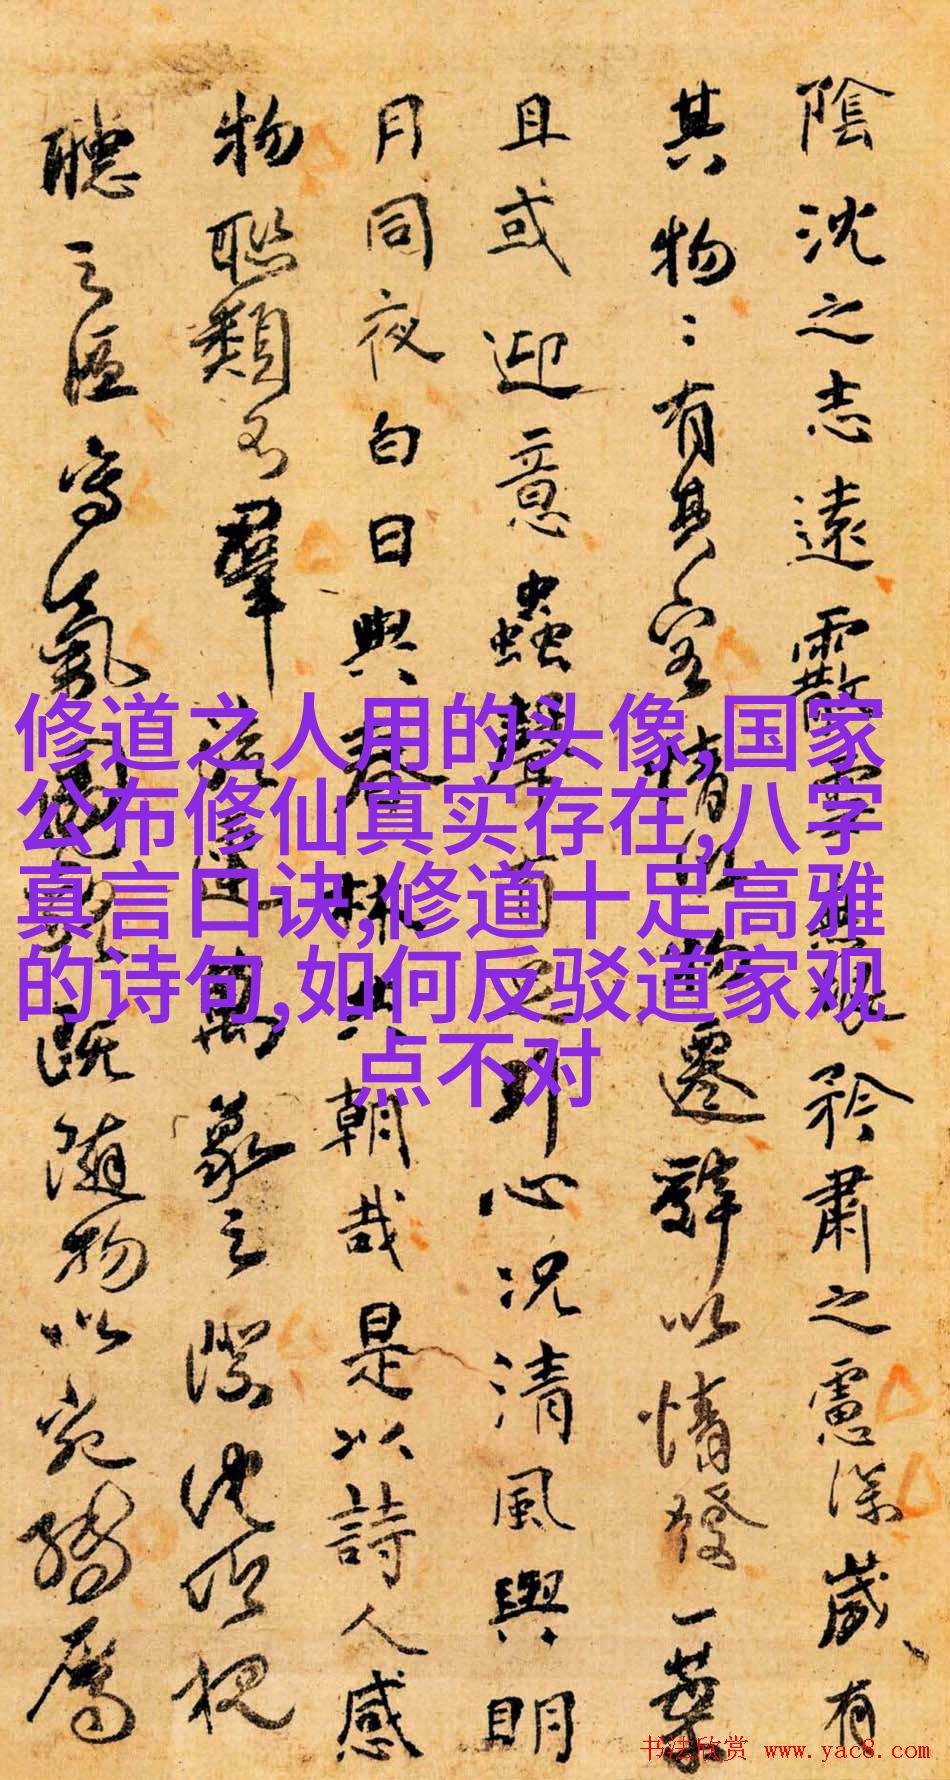 陰沈之志遠霰雪無垠矜肅之慮深歲有
其物〻有其容情以物遷辭以情發一葉
且或迎意蟲聲有足引心況清風與明
月同夜白日與春林共朝哉是以詩人感
物聯類不窮流連萬象之際沈吟視
聽之區寫氣圖貌既隨物以宛轉屬
修道之人用的头像,国家
公布修仙真实存在,八字
真言口诀,修道十足高雅
的诗句,如何反驳道家观
点不对
书法欣赏 www.yac8.com